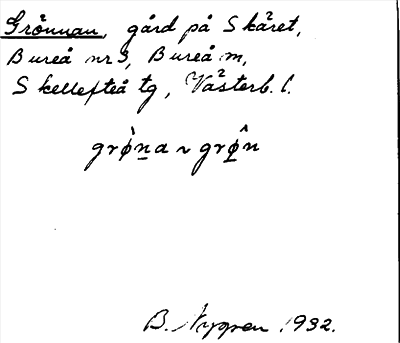 Grönnan, gård på Skäret,
Bureå nr 3, Bureå m,
Skellefteå tg, Västerb. l.
grø̀n̲a ~ grø̂n
B. Nygren 1932.